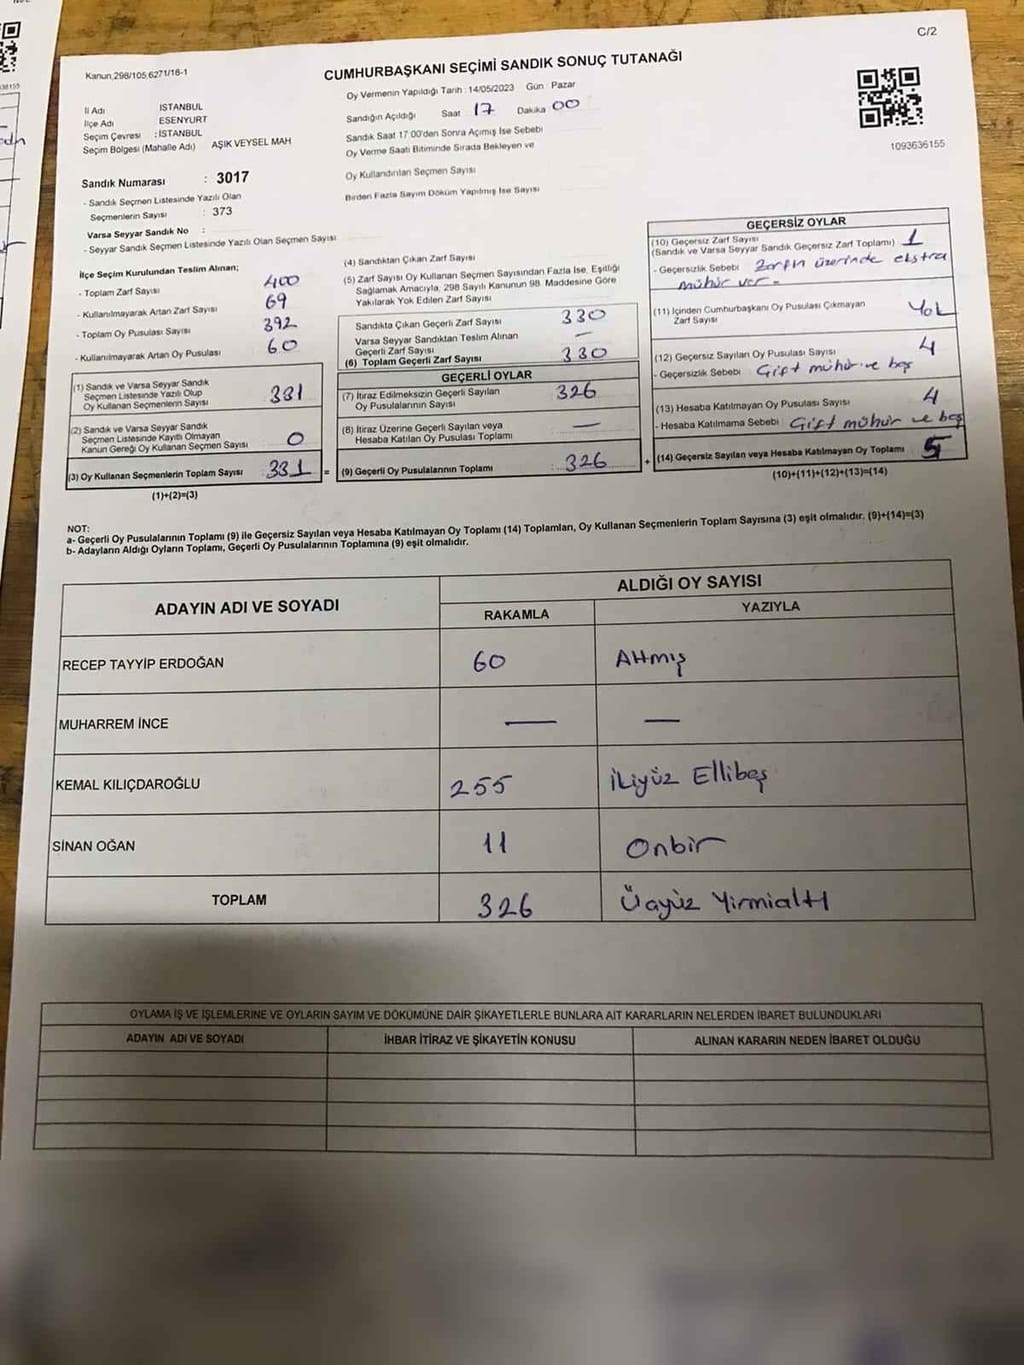 C/2
Kanun,298/105,6271/16-1
CUMHURBAŞKANI SEÇİMİ SANDIK SONUÇ TUTANAĞI
1093636155
İl Adı İSTANBUL
İlçe Adı ESENYURT
Seçim Çevresi : İSTANBUL
Seçim Bölgesi (Mahalle Adı) AŞIK VEYSEL MAH
Sandık Numarası : 3017
- Sandık Seçmen Listesinde Yazılı Olan
Seçmenlerin Sayısı : 373
Varsa Seyyar Sandık No :
- Seyyar Sandık Seçmen Listesinde Yazılı Olan Seçmen Sayısı
Oy Vermenin Yapıldığı Tarih : 14/05/2023 Gün : Pazar
Sandığın Açıldığı Saat 17 Dakika 00
Sandık Saat 17.00'den Sonra Açımış İse Sebebi
Oy Verme Saati Bitiminde Sırada Bekleyen ve
Oy Kullandırılan Seçmen Sayısı
Birden Fazla Sayım Döküm Yapılmış İse Sayısı
İlçe Seçim Kurulundan Teslim Alınan;
- Toplam Zarf Sayısı 400
- Kullanılmayarak Artan Zarf Sayısı 69
- Toplam Oy Pusulası Sayısı 392
- Kullanılmayarak Artan Oy Pusulası 60
(1) Sandık ve Varsa Seyyar Sandık
Seçmen Listesinde Yazılı Olup
Oy Kullanan Seçmenlerin Sayısı 331
(2) Sandık ve Varsa Seyyar Sandık
Seçmen Listesinde Kayıtlı Olmayan
Kanun Gereği Oy Kullanan Seçmen Sayısı 0
(3) Oy Kullanan Seçmenlerin Toplam Sayısı 331 =
(1)+(2)=(3)
(4) Sandıktan Çıkan Zarf Sayısı
(5) Zarf Sayısı Oy Kullanan Seçmen Sayısından Fazla İse, Eşitliği
Sağlamak Amacıyla, 298 Sayılı Kanunun 98. Maddesine Göre
Yakılarak Yok Edilen Zarf Sayısı
Sandıkta Çıkan Geçerli Zarf Sayısı 330
Varsa Seyyar Sandıktan Teslim Alınan
Geçerli Zarf Sayısı —
(6) Toplam Geçerli Zarf Sayısı 330
GEÇERLİ OYLAR
(7) İtiraz Edilmeksizin Geçerli Sayılan
Oy Pusulalarının Sayısı 326
(8) İtiraz Üzerine Geçerli Sayılan veya
Hesaba Katılan Oy Pusulası Toplamı —
(9) Geçerli Oy Pusulalarının Toplamı : 326 +
GEÇERSİZ OYLAR
(10) Geçersiz Zarf Sayısı
(Sandık ve Varsa Seyyar Sandık Geçersiz Zarf Toplamı) 1
- Geçersizlik Sebebi Zarfın üzerinde ekstra
mühür var -
(11) İçinden Cumhurbaşkanı Oy Pusulası Çıkmayan
Zarf Sayısı Yok
(12) Geçersiz Sayılan Oy Pusulası Sayısı 4
- Geçersizlik Sebebi Çift mühür ve boş
(13) Hesaba Katılmayan Oy Pusulası Sayısı 4
- Hesaba Katılmama Sebebi Çift mühür ve boş
(14) Geçersiz Sayılan veya Hesaba Katılmayan Oy Toplamı 5
(10)+(11)+(12)+(13)=(14)
NOT:
a- Geçerli Oy Pusulalarının Toplamı (9) ile Geçersiz Sayılan veya Hesaba Katılmayan Oy Toplamı (14) Toplamları, Oy Kullanan Seçmenlerin Toplam Sayısına (3) eşit olmalıdır. (9)+(14)=(3)
b- Adayların Aldığı Oyların Toplamı, Geçerli Oy Pusulalarının Toplamına (9) eşit olmalıdır.
ADAYIN ADI VE SOYADI
ALDIĞI OY SAYISI
RAKAMLA YAZIYLA
RECEP TAYYİP ERDOĞAN 60 Altmış
MUHARREM İNCE — —
KEMAL KILIÇDAROĞLU 255 İkiyüz Ellibeş
SİNAN OĞAN 11 Onbir
TOPLAM 326 Üçyüz Yirmialtı
OYLAMA İŞ VE İŞLEMLERİNE VE OYLARIN SAYIM VE DÖKÜMÜNE DAİR ŞİKAYETLERLE BUNLARA AİT KARARLARIN NELERDEN İBARET BULUNDUKLARI
ADAYIN ADI VE SOYADI İHBAR İTİRAZ VE ŞİKAYETİN KONUSU ALINAN KARARIN NEDEN İBARET OLDUĞU